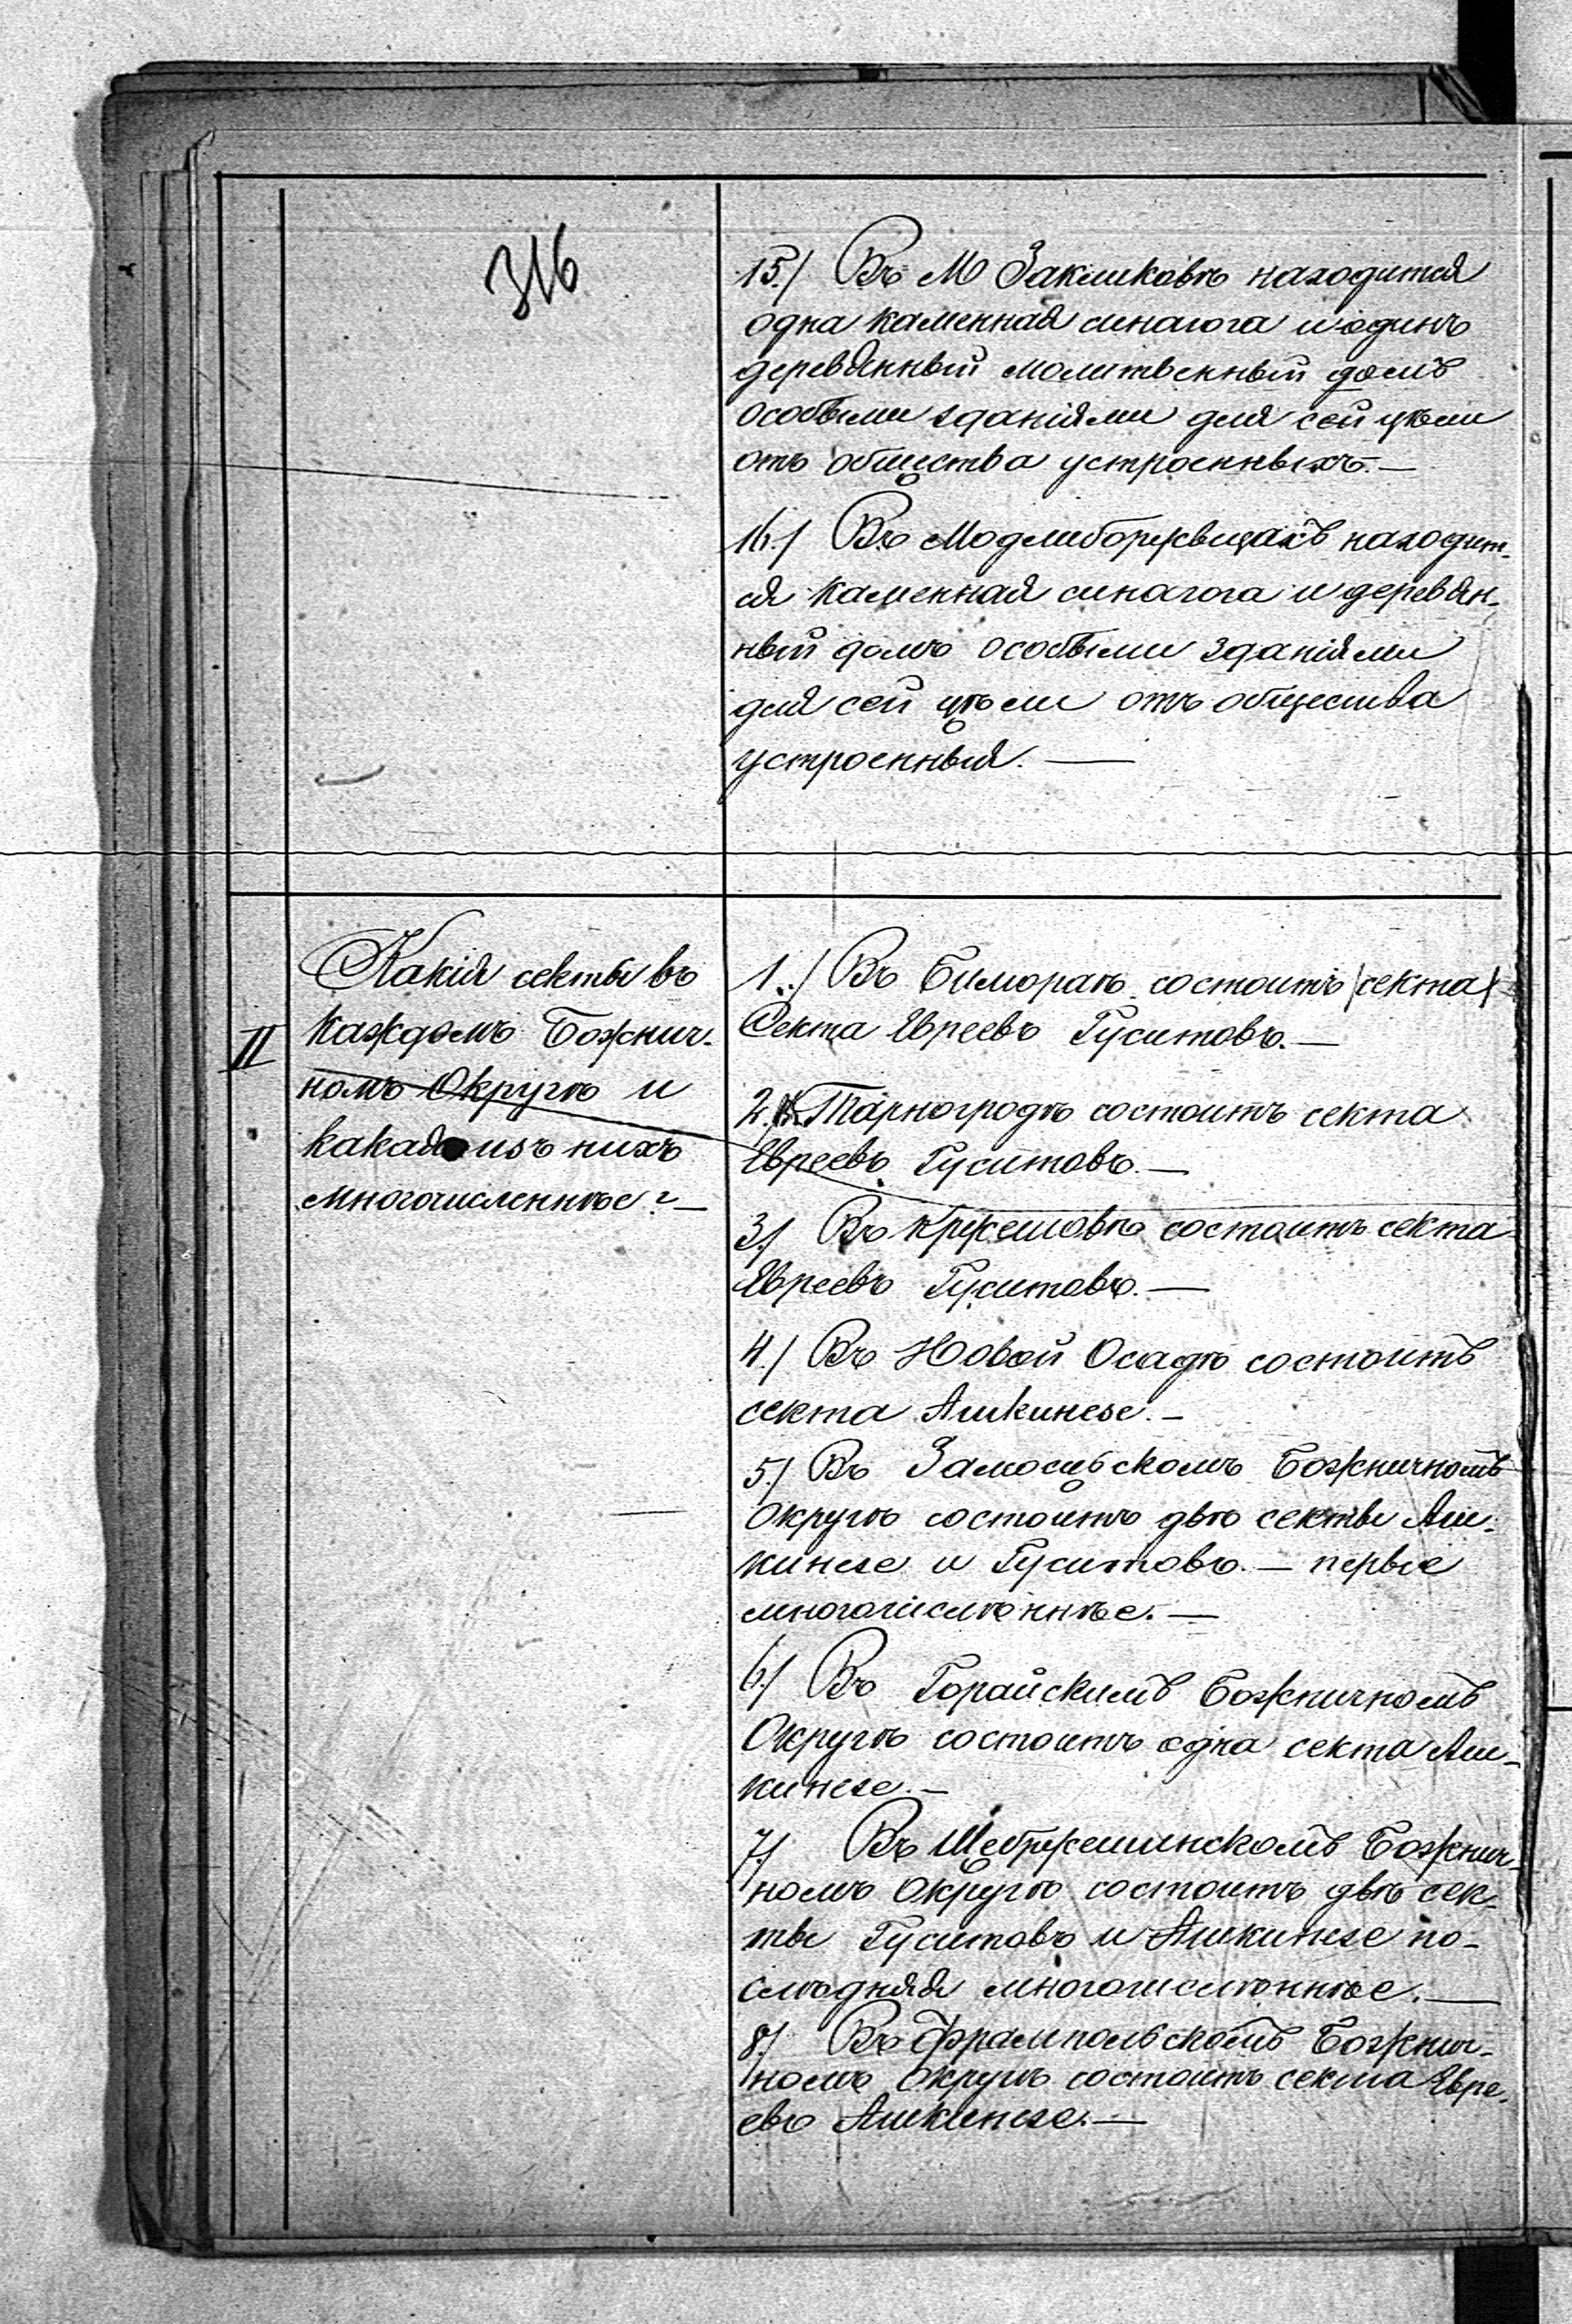 316
15./ Въ М Закликовѣ находится
одна каменная синагога и одинъ
деревянный молитвенный домъ
особыми зданіями для сей цѣли
отъ общества устроенныхъ.—
16./ Въ Модлиборжицахъ находит-
ся каменная синагога и деревян-
ный домъ особыми зданіями
для сей цѣли отъ общества
устроенныя.—
II
Какія секты въ
каждомъ Божнич-
номъ Округѣ и
какая изъ нихъ
многочисленнѣе?—
1./ Въ Билгораѣ состоитъ /секта/
Секта Евреевъ Гуситовъ.—
2./ Въ Тарногродѣ состоитъ секта
Евреевъ Гуситовъ.—
3./ Въ Кржешовѣ состоитъ секта
Евреевъ Гуситовъ.—
4./ Въ Новой Осадѣ состоитъ
секта Ашкинезе.—
5./ Въ Замосцьскомъ Божничномъ
Округѣ состоитъ двѣ секты Аш-
кинезе и Гуситовъ.— первіе
многочислѣннѣе.—
6./ Въ Горайскимъ Божничномъ
Округѣ состоитъ одна секта Аш-
кинезе.—
7./ Въ Щебржешинскомъ Божнич-
номъ Округѣ состоитъ двѣ сек-
ты Гуситовъ и Ашкинезе по-
слѣдняя многочислѣннѣе.—
8./ Въ Фрампольскомъ Божнич-
номъ Округѣ состоитъ секта Евре-
евъ Ашкинезе.—